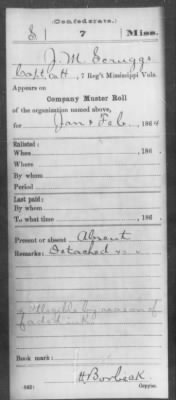 (Confederate.)
S 7 Miss.
J. M. Scruggs
Capt, Co H, 7 Reg't Mississippi Vols.
Appears on
Company Muster Roll
of the organization named above,
for Jan & Feb, 1864
Enlisted:
When , 186 .
Where
By whom
Period
Last paid:
By whom
To what time , 186 .
Present or absent Absent
Remarks: Detached x x x
x Illegible by reason of
faded ink
Book mark:
(642) H Borbeck
Copyist.